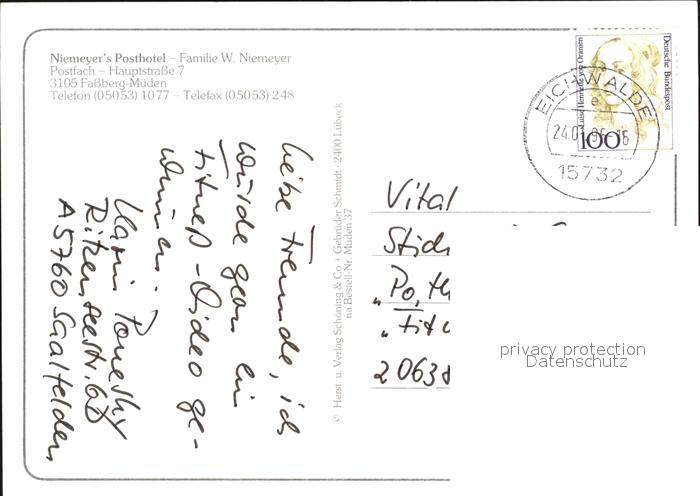 Niemeyer's Posthotel – Familie W. Niemeyer
Postfach – Hauptstraße 7
3105 Faßberg-Müden
Telefon (05053) 1077 – Telefax (05053) 248
Liebe Freunde, ich
würde gern ein
Fitneß-Video ge-
winnen.
Ritzenseestr. 60
A5760 Saalfelden
© Herst. u. Verlag Schöning & Co + Gebrüder Schmidt · 2400 Lübeck
na Bestell-Nr. Müden 37
Luise Henriette von Oranien
Deutsche Bundespost
100
EICHWALDE
e
24.01.96-16
15732
Vital
2063
privacy protection
Datenschutz